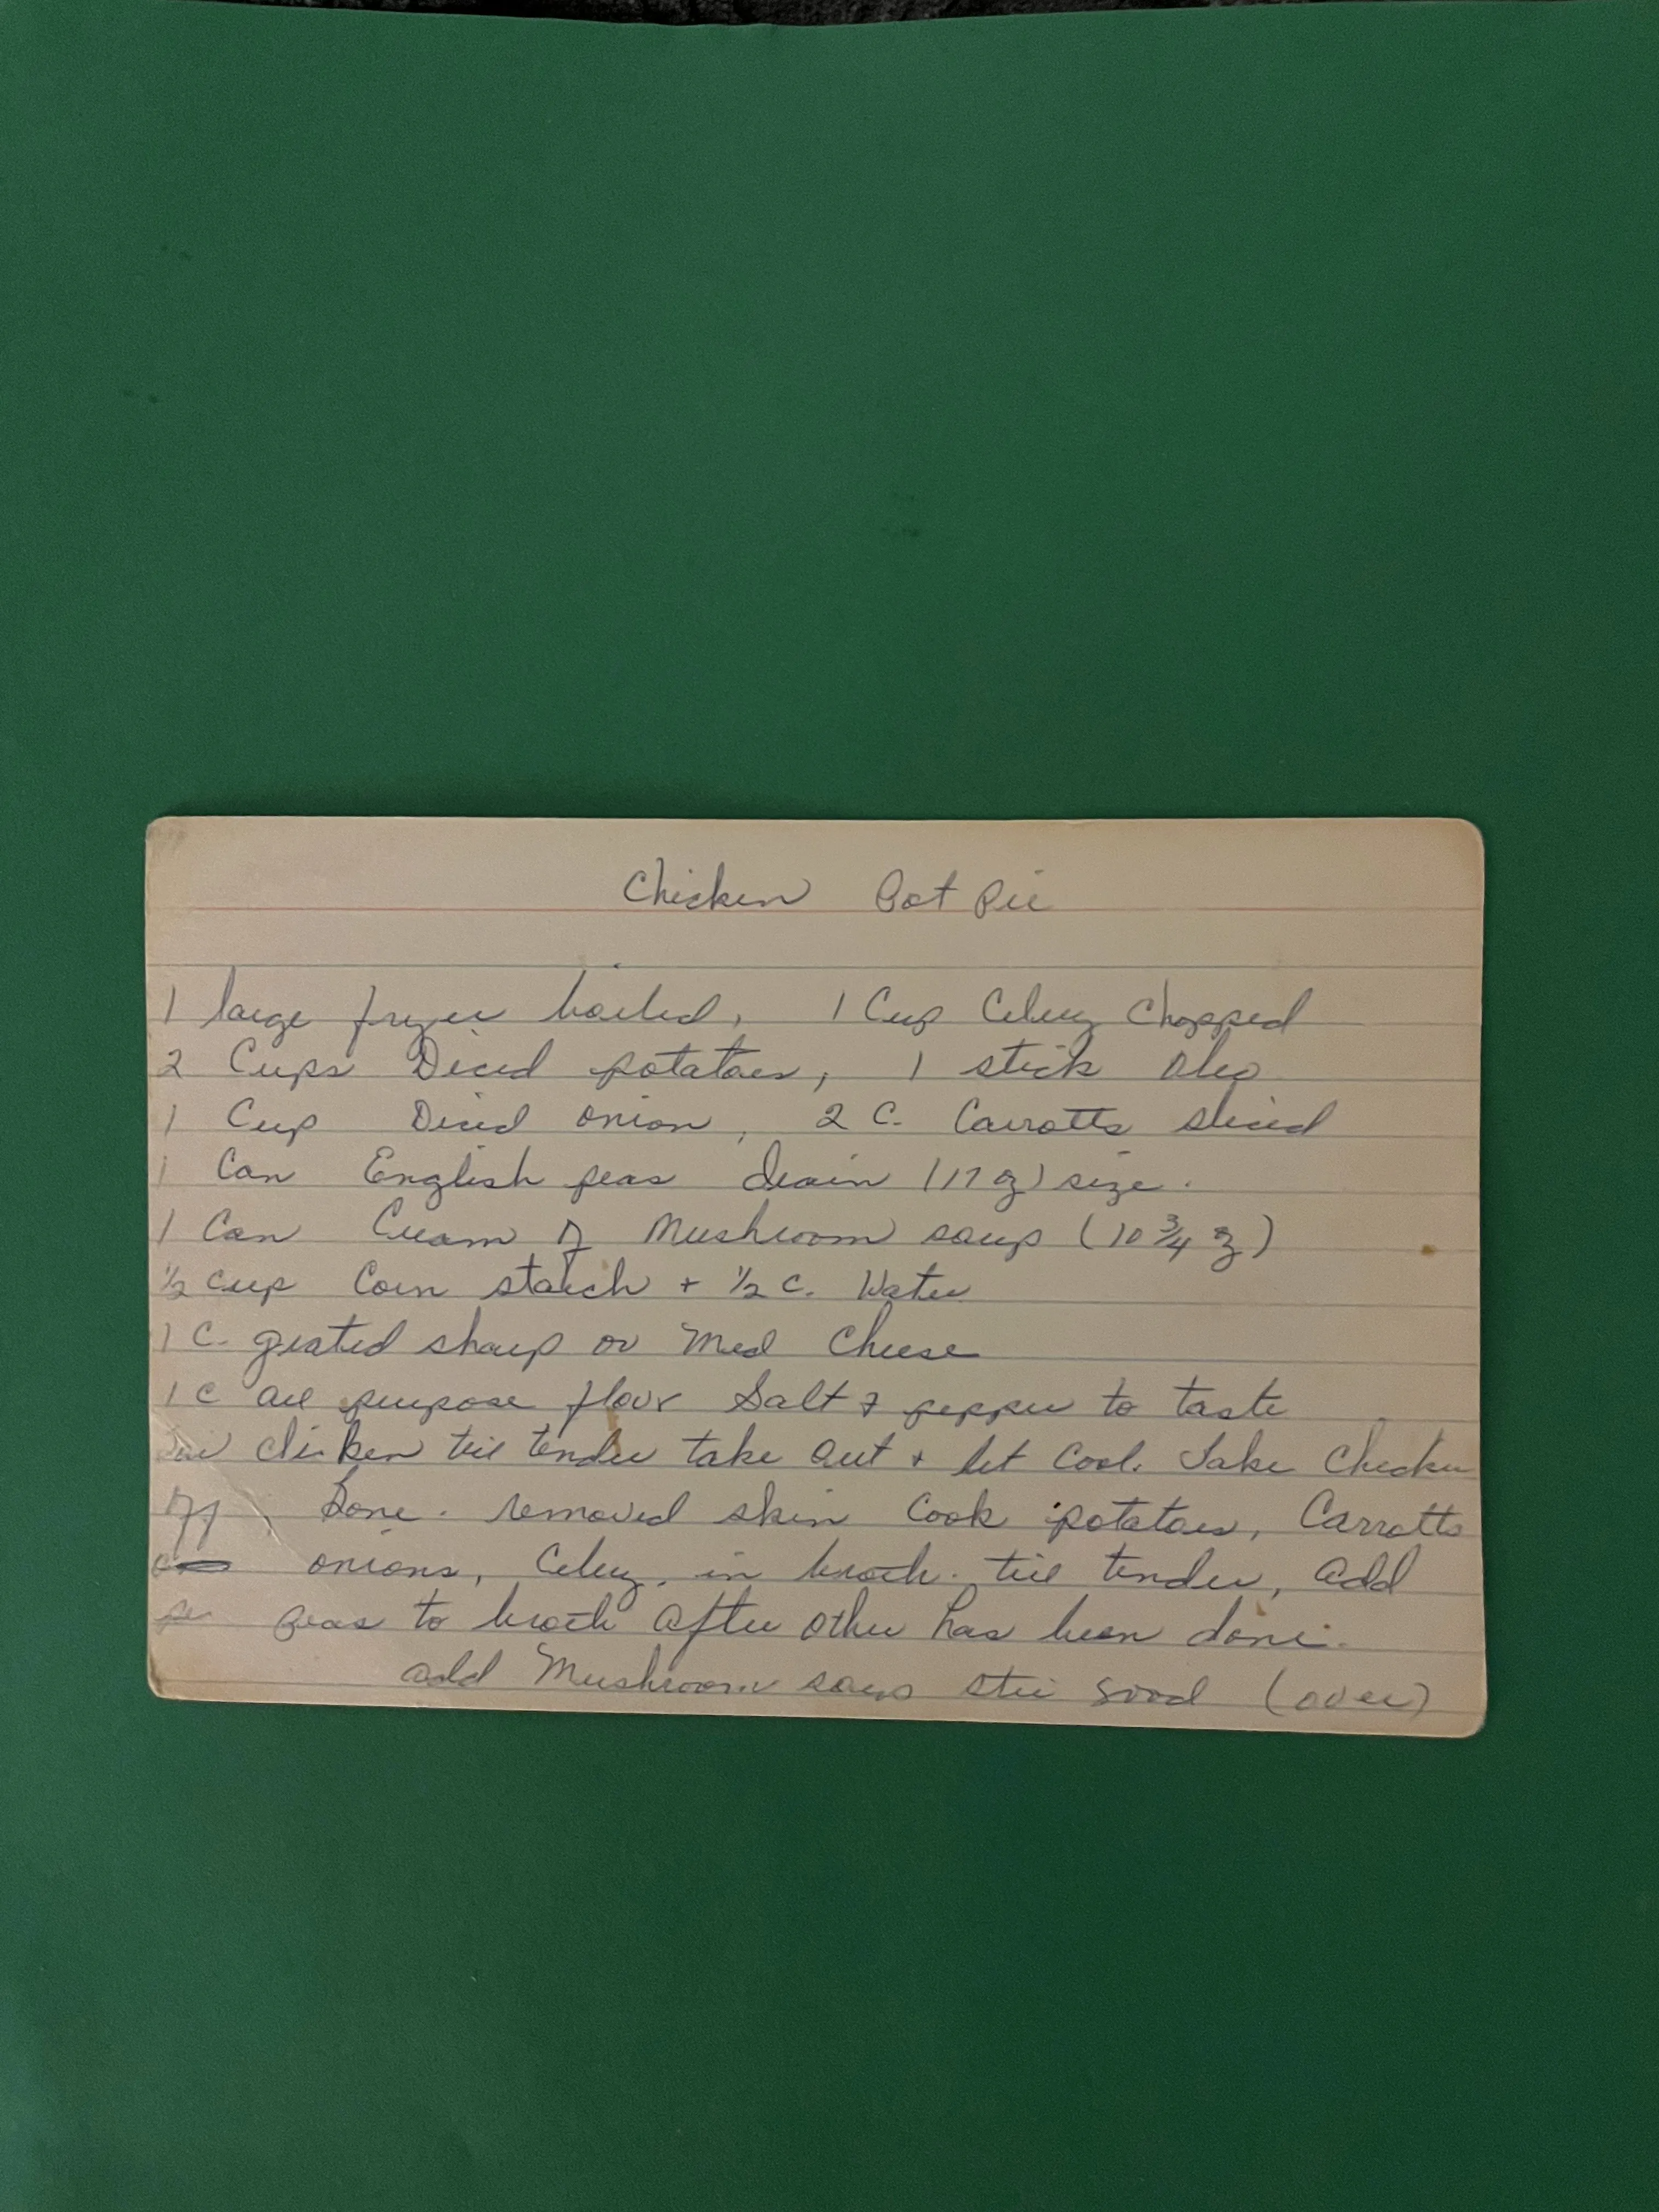 Chicken Pot Pie
1 large fryer boiled, 1 Cup Celery Chopped
2 Cups Diced potatoes, 1 stick Oleo
1 Cup Diced onion, 2 C. Carrotts sliced
1 Can English peas drain (17 oz) size.
1 Can Cream of Mushroom soup (10 3/4 oz)
1/2 cup Corn starch + 1/2 C. Water
1 C. grated sharp or Med Cheese
1 C all purpose flour Salt & pepper to taste
chicken till tender take out + let Cool. Take Chicken
off bone. removed skin Cook potatoes, Carrotts
onions, Celery, in broth. till tender, add
peas to broth after other has been done.
add Mushroom soup stir good (over)